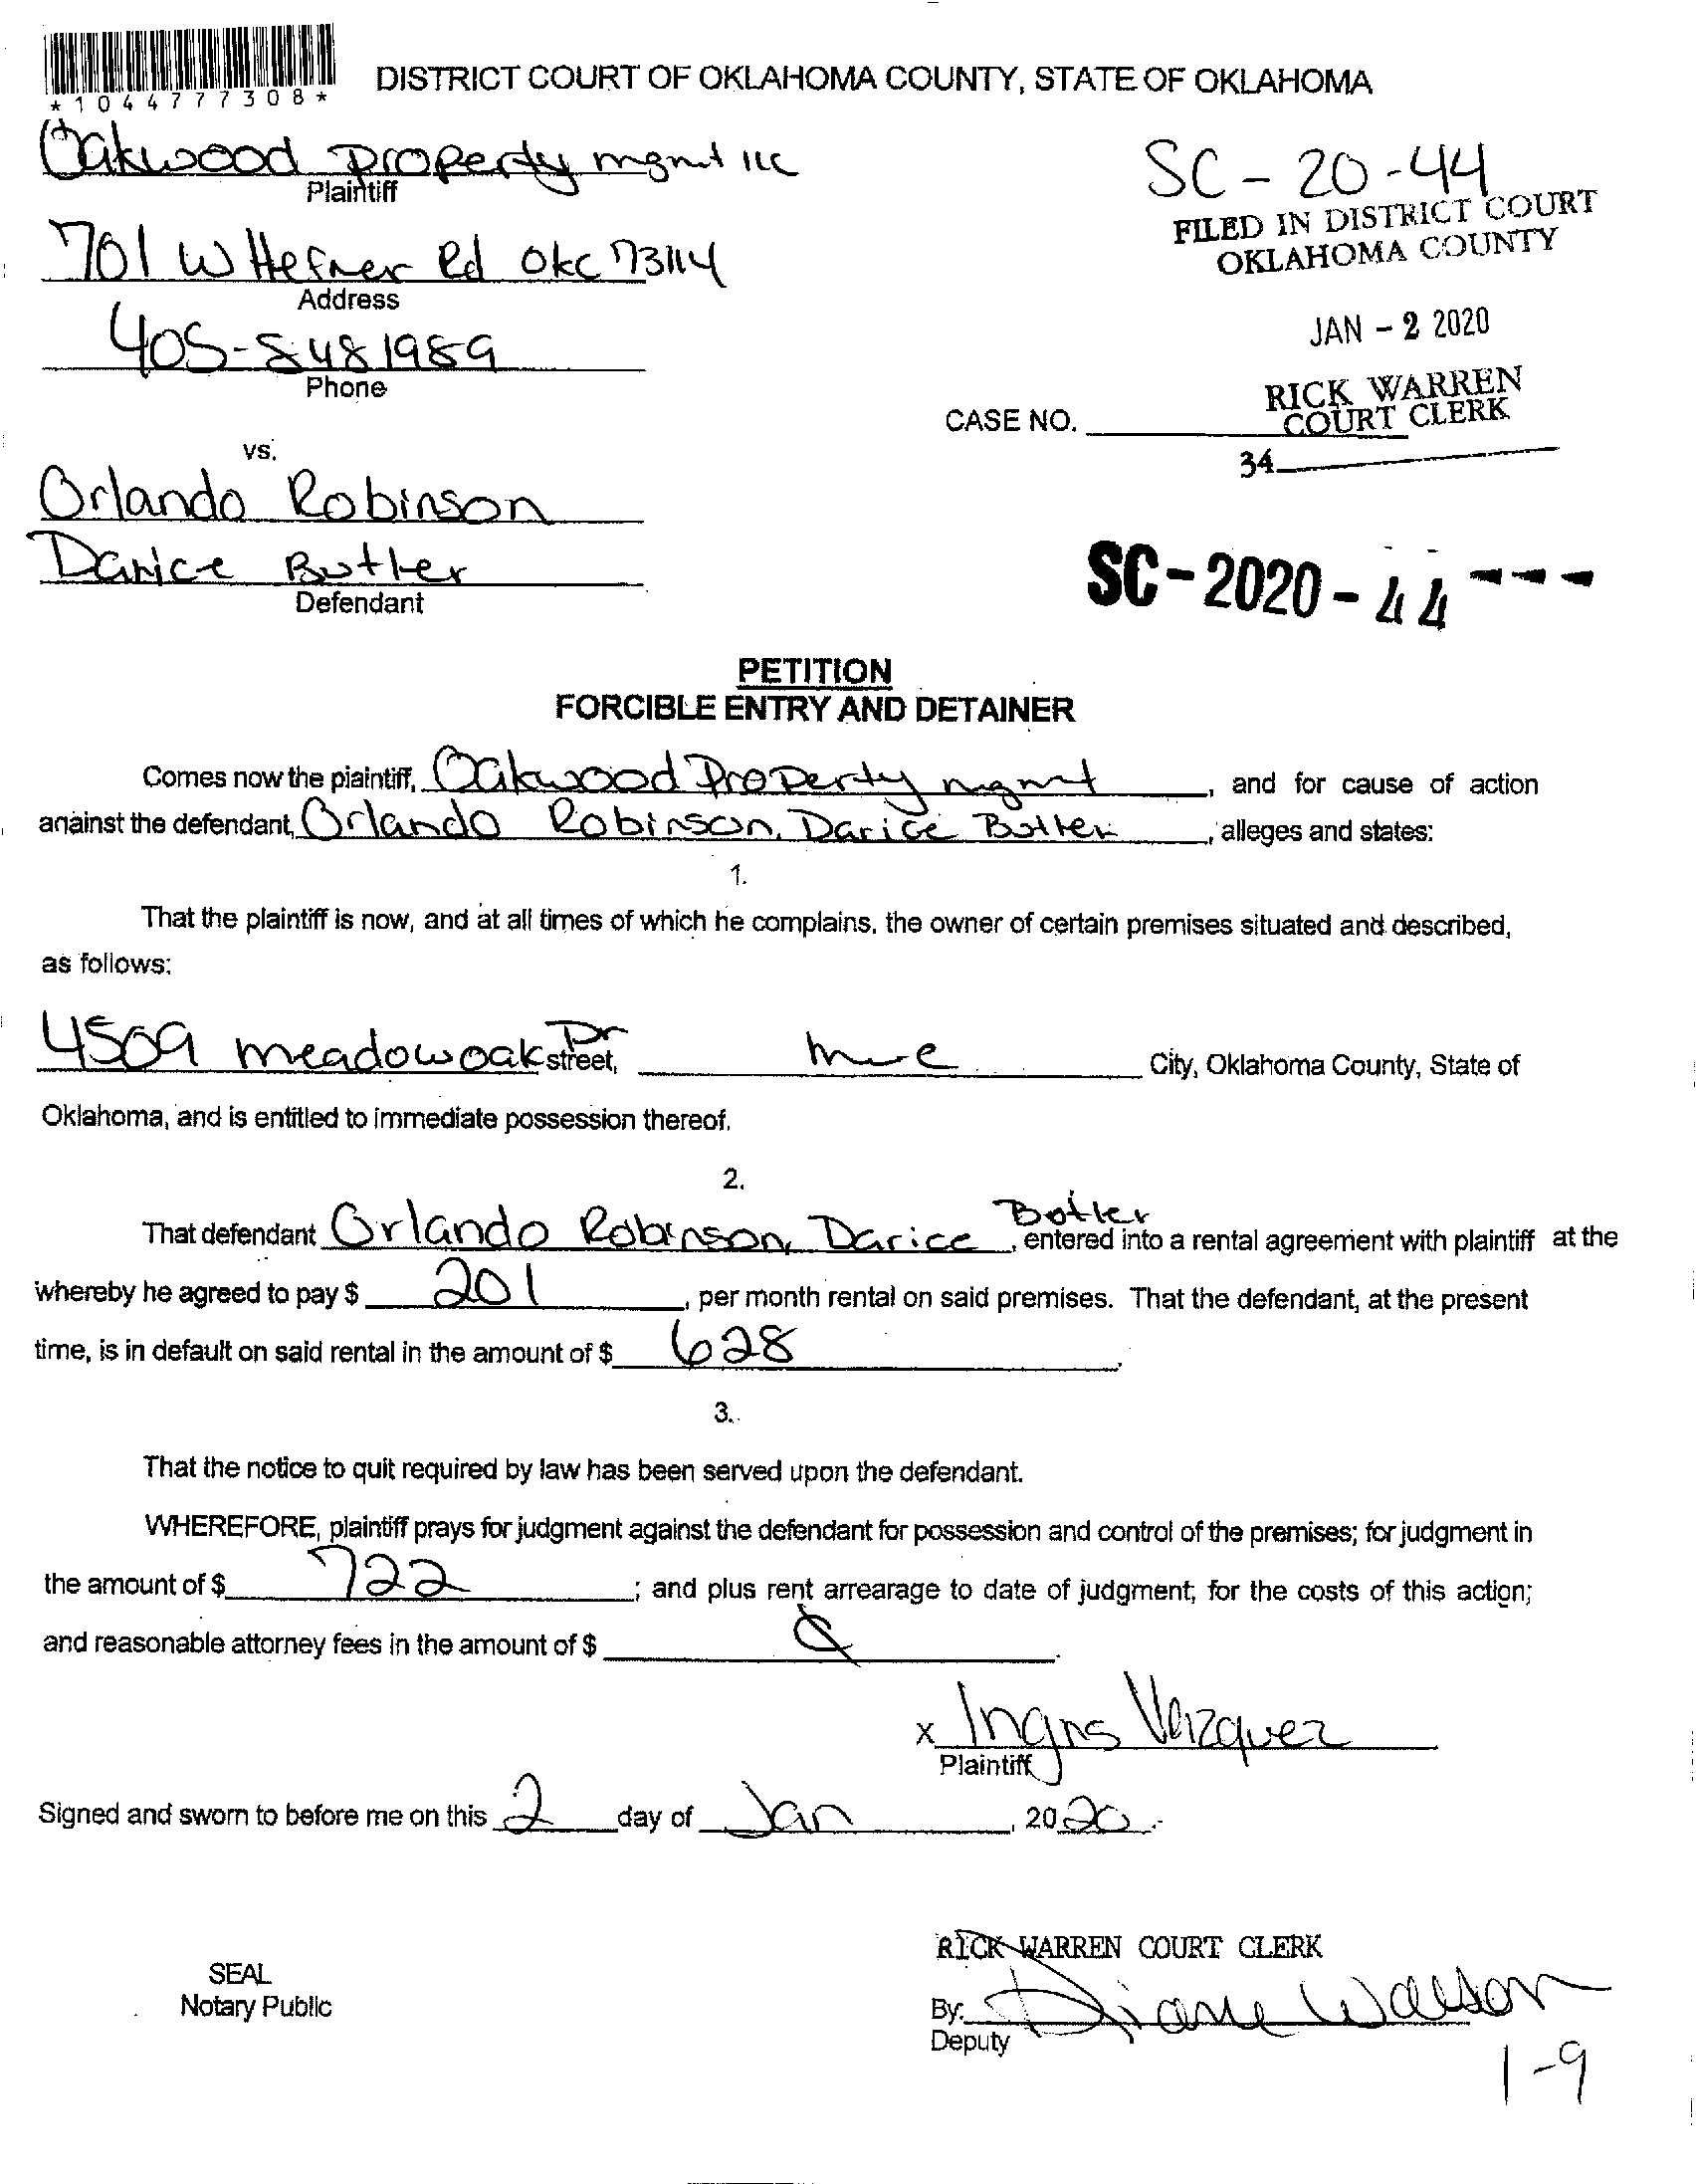 *1044777308*
DISTRICT COURT OF OKLAHOMA COUNTY, STATE OF OKLAHOMA
Oakwood property mgmt llc
Plaintiff
SC - 20-44
FILED IN DISTRICT COURT
OKLAHOMA COUNTY
701 W Hefner Rd Okc 73114
Address
JAN - 2 2020
405-848 1989
Phone
RICK WARREN
COURT CLERK
CASE NO.
34
vs.
Orlando Robinson
Darice Butler
Defendant
SC-2020-44---
PETITION
FORCIBLE ENTRY AND DETAINER
Comes now the plaintiff, Oakwood Property mgmt, and for cause of action
against the defendant, Orlando Robinson, Darice Butler, alleges and states:
1.
That the plaintiff is now, and at all times of which he complains, the owner of certain premises situated and described,
as follows:
4509 meadowoak Dr street, City, Oklahoma County, State of
Oklahoma, and is entitled to immediate possession thereof.
2.
That defendant Orlando Robinson, Darice Butler, entered into a rental agreement with plaintiff at the
whereby he agreed to pay $ 201, per month rental on said premises. That the defendant, at the present
time, is in default on said rental in the amount of $ 628.
3.
That the notice to quit required by law has been served upon the defendant.
WHEREFORE, plaintiff prays for judgment against the defendant for possession and control of the premises; for judgment in
the amount of $ 722; and plus rent arrearage to date of judgment; for the costs of this action;
and reasonable attorney fees in the amount of $
x
Plaintiff
Signed and sworn to before me on this 2 day of Jan, 2020.
RICK WARREN COURT CLERK
SEAL
Notary Public
By: Diane Watson
Deputy
1-9